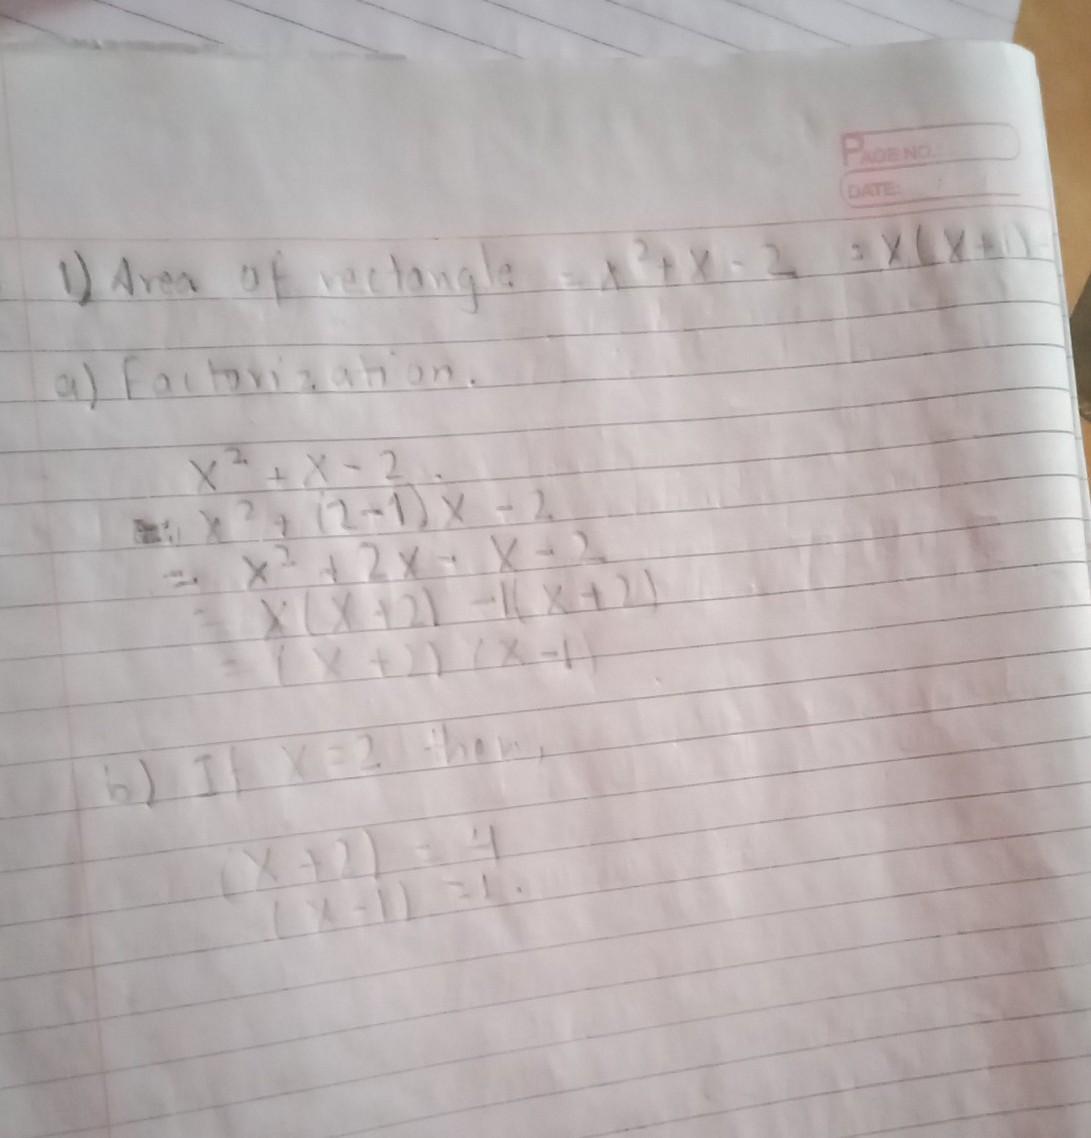 PAGE NO.:
DATE: / /
1) Area of rectangle = x²+x-2 = x(x+1)-
a) Factorization.
x² + x - 2.
= x² + (2-1)x - 2
= x² + 2x - x - 2
= x(x+2) -1(x+2)
= (x+2) (x-1)
b) If x=2 then,
(x+2) = 4
(x-1) = 1.